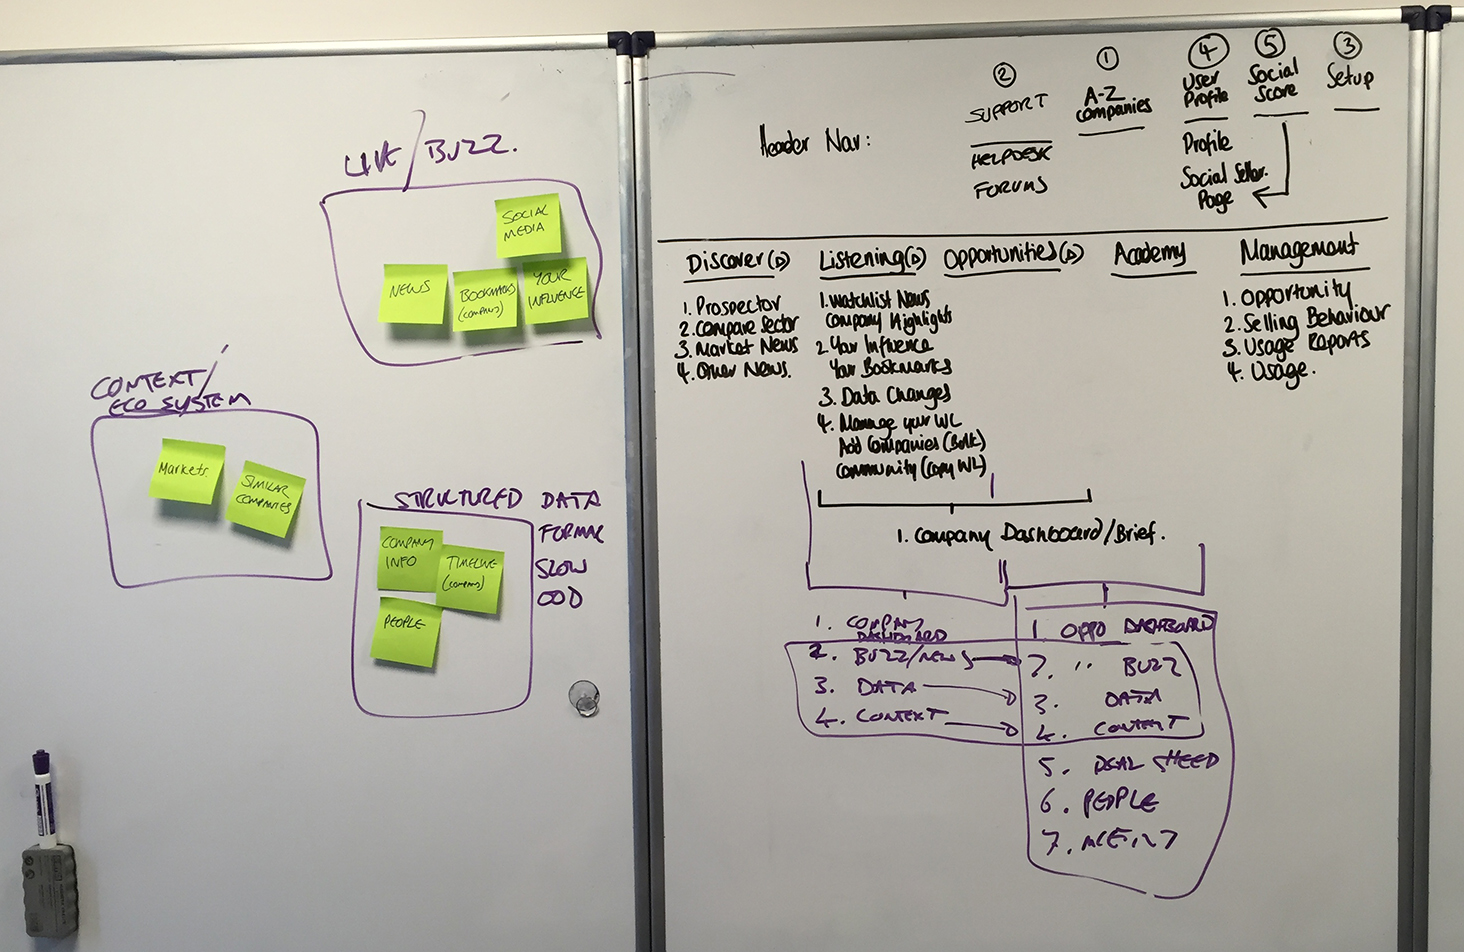 LIVE / BUZZ.
SOCIAL
MEDIA
NEWS
BOOKMARKS
(COMPANY)
YOUR
INFLUENCE
CONTEXT /
ECO SYSTEM
Markets.
SIMILAR
COMPANIES
STRUCTURED DATA
FORMAL
SLOW
COMPANY
INFO
TIMELINE
(COMPANY)
PEOPLE
Header Nav:
②
SUPPORT
HELPDESK
FORUMS
①
A-Z
Companies
④
User
Profile
Profile
Social Seller.
Page
⑤
Social
Score
③
Setup
Discover (D)
1. Prospector
2. Compare Sector
3. Market News
4. Other News.
Listening (D)
1. Watchlist News
Company Highlights
2. Your Influence
Your Bookmarks
3. Data Changes
4. Manage your WL
Add Companies (Bulk)
Community (Copy WL)
Opportunities (D)
Academy
Management
1. Opportunity
2. Selling Behaviour
3. Usage Reports
4. Usage.
1. Company Dashboard/Brief.
1. COMPANY
DASHBOARD
2. BUZZ/NEWS
3. DATA
4. CONTEXT
1 OPPO DASHBOARD
2. '' BUZZ
3. DATA
4. CONTEXT
5. DEAL SHEED
6. PEOPLE
7.